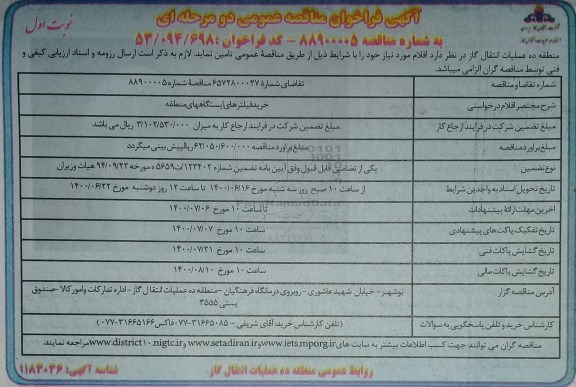 آگهی فراخوان مناقصه عمومی دو مرحله ای
نوبت اول
به شماره مناقصه ۸۸۹۰۰۰۰۵ - کد فراخوان: ۵۳/۰۹۴/۶۹۸
منطقه ده عملیات انتقال گاز در نظر دارد اقلام مورد نیاز خود را با شرایط ذیل از طریق مناقصه عمومی تامین نماید. لازم به ذکر است ارسال رزومه و اسناد ارزیابی کیفی و
فنی توسط مناقصه گران الزامی میباشد.
شماره تقاضا و مناقصه تقاضای شماره ۶۵۷۲۸۰۰۰۲۷ مناقصه شماره ۸۸۹۰۰۰۰۵
شرح مختصر اقلام درخواستی خرید فیلترهای ایستگاههای منطقه
مبلغ تضمین شرکت در فرایند ارجاع کار مبلغ تضمین شرکت در فرایند ارجاع کار به میزان ۳/۱۰۲/۵۳۰/۰۰۰ ریال می باشد
مبلغ برآورد مناقصه مبلغ برآورد مناقصه ۶۲/۰۵۰/۶۰۰/۰۰۰ ریال پیش بینی میگردد
نوع تضمین یکی از تضامین قابل قبول وفق آیین نامه تضمین شماره ۱۲۳۴۰۲/ت۵۶۵۹ه مورخه ۹۴/۰۹/۲۲ هیات وزیران
تاریخ تحویل اسناد به واجدین شرایط از ساعت ۱۰ صبح روز سه شنبه مورخ ۱۴۰۰/۰۶/۱۶ تا ساعت ۱۲ روز دوشنبه مورخ ۱۴۰۰/۰۶/۲۲
آخرین مهلت ارائه پیشنهادات تا ساعت ۱۰ مورخ ۱۴۰۰/۰۷/۰۶
تاریخ تفکیک پاکت های پیشنهادی ساعت ۱۰ مورخ ۱۴۰۰/۰۷/۰۷
تاریخ گشایش پاکات فنی ساعت ۱۰ مورخ ۱۴۰۰/۰۷/۲۱
تاریخ گشایش پاکات مالی ساعت ۱۰ مورخ ۱۴۰۰/۰۸/۱۰
آدرس مناقصه گزار بوشهر- خیابان شهید عاشوری - روبروی درمانگاه فرهنگیان - منطقه ده عملیات انتقال گاز - اداره تدارکات وامور کالا - صندوق
پستی ۳۵۵۵
کارشناس خرید و تلفن پاسخگویی به سوالات (تلفن کارشناس خرید آقای شریفی - ۳۱۶۶۵۰۸۵-۰۷۷ فاکس ۳۱۶۶۵۱۶۶-۰۷۷)
مناقصه گران می توانند جهت کسب اطلاعات بیشتر به سایت های www.iets.mporg.ir و www.setadiran.ir و www.district10.nigtc.ir مراجعه نمایند.
روابط عمومی منطقه ده عملیات انتقال گاز
شناسه آگهی: ۱۱۸۳۰۳۶